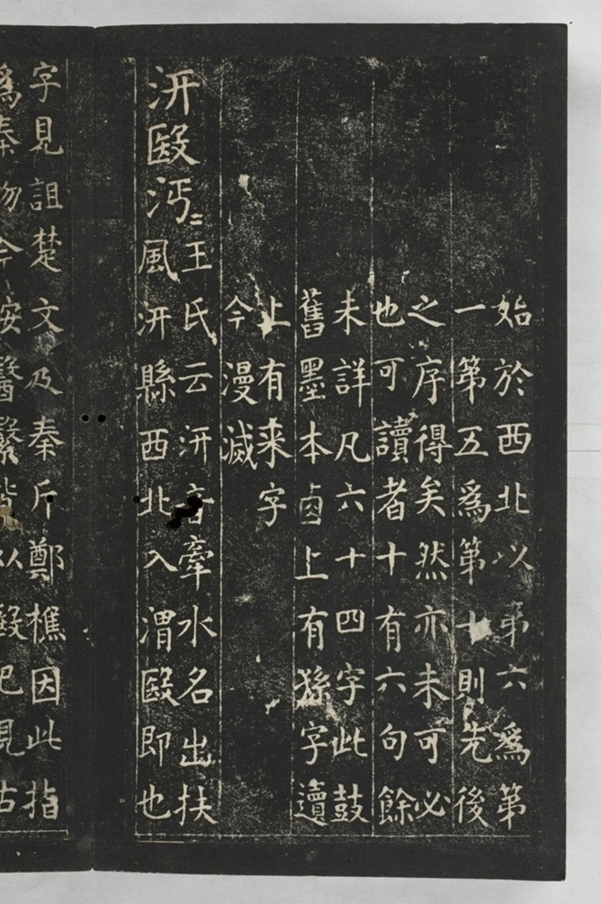 始於西北以第六爲第
一第五爲第十則先後
之序得矣然亦未可必
也可讀者十有六句餘
未詳凡六十四字此鼓
舊墨本卤上有字
上有来字
今漫滅
汧殹沔=
王氏云汧音牽水名出扶
風汧縣西北入渭殹即也
字見詛楚文及秦斤鄭樵因此指
爲秦物今按醫繄皆从殹已見古